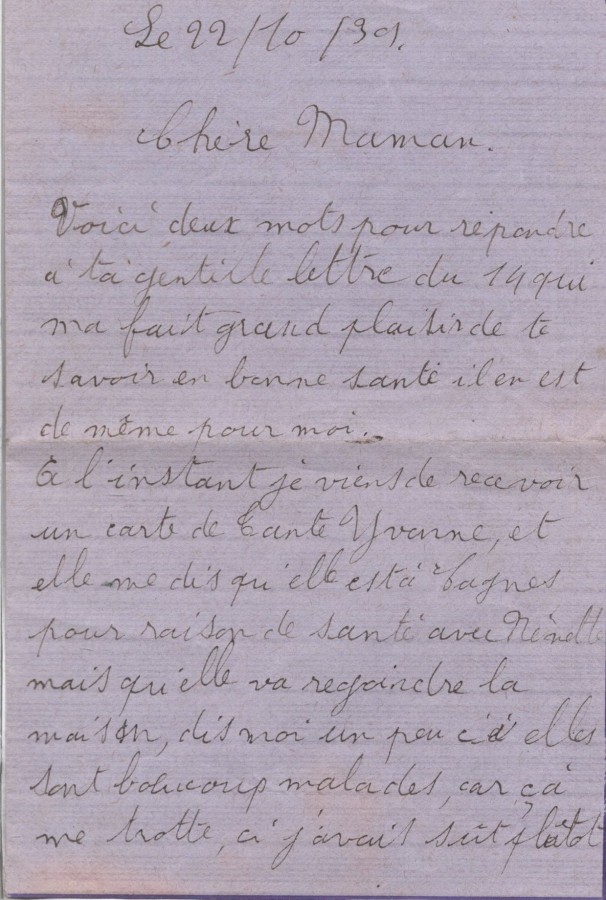 Le 22/10/39.
Chère Maman.
Voici deux mots pour répondre
a ta gentille lettre du 14 qui
ma fait grand plaisir de te
savoir en bonne santé il en est
de même pour moi.
A l'instant je viens de recevoir
un carte de Tante Yvonne, et
elle me dis qu'elle est à Cagnes
pour raison de santé avec Nénette
mais qu'elle va regoindre la
maison, dis moi un peu ci elles
sont beaucoup malades, car çà
me trotte, ci j'avais sût plutôt